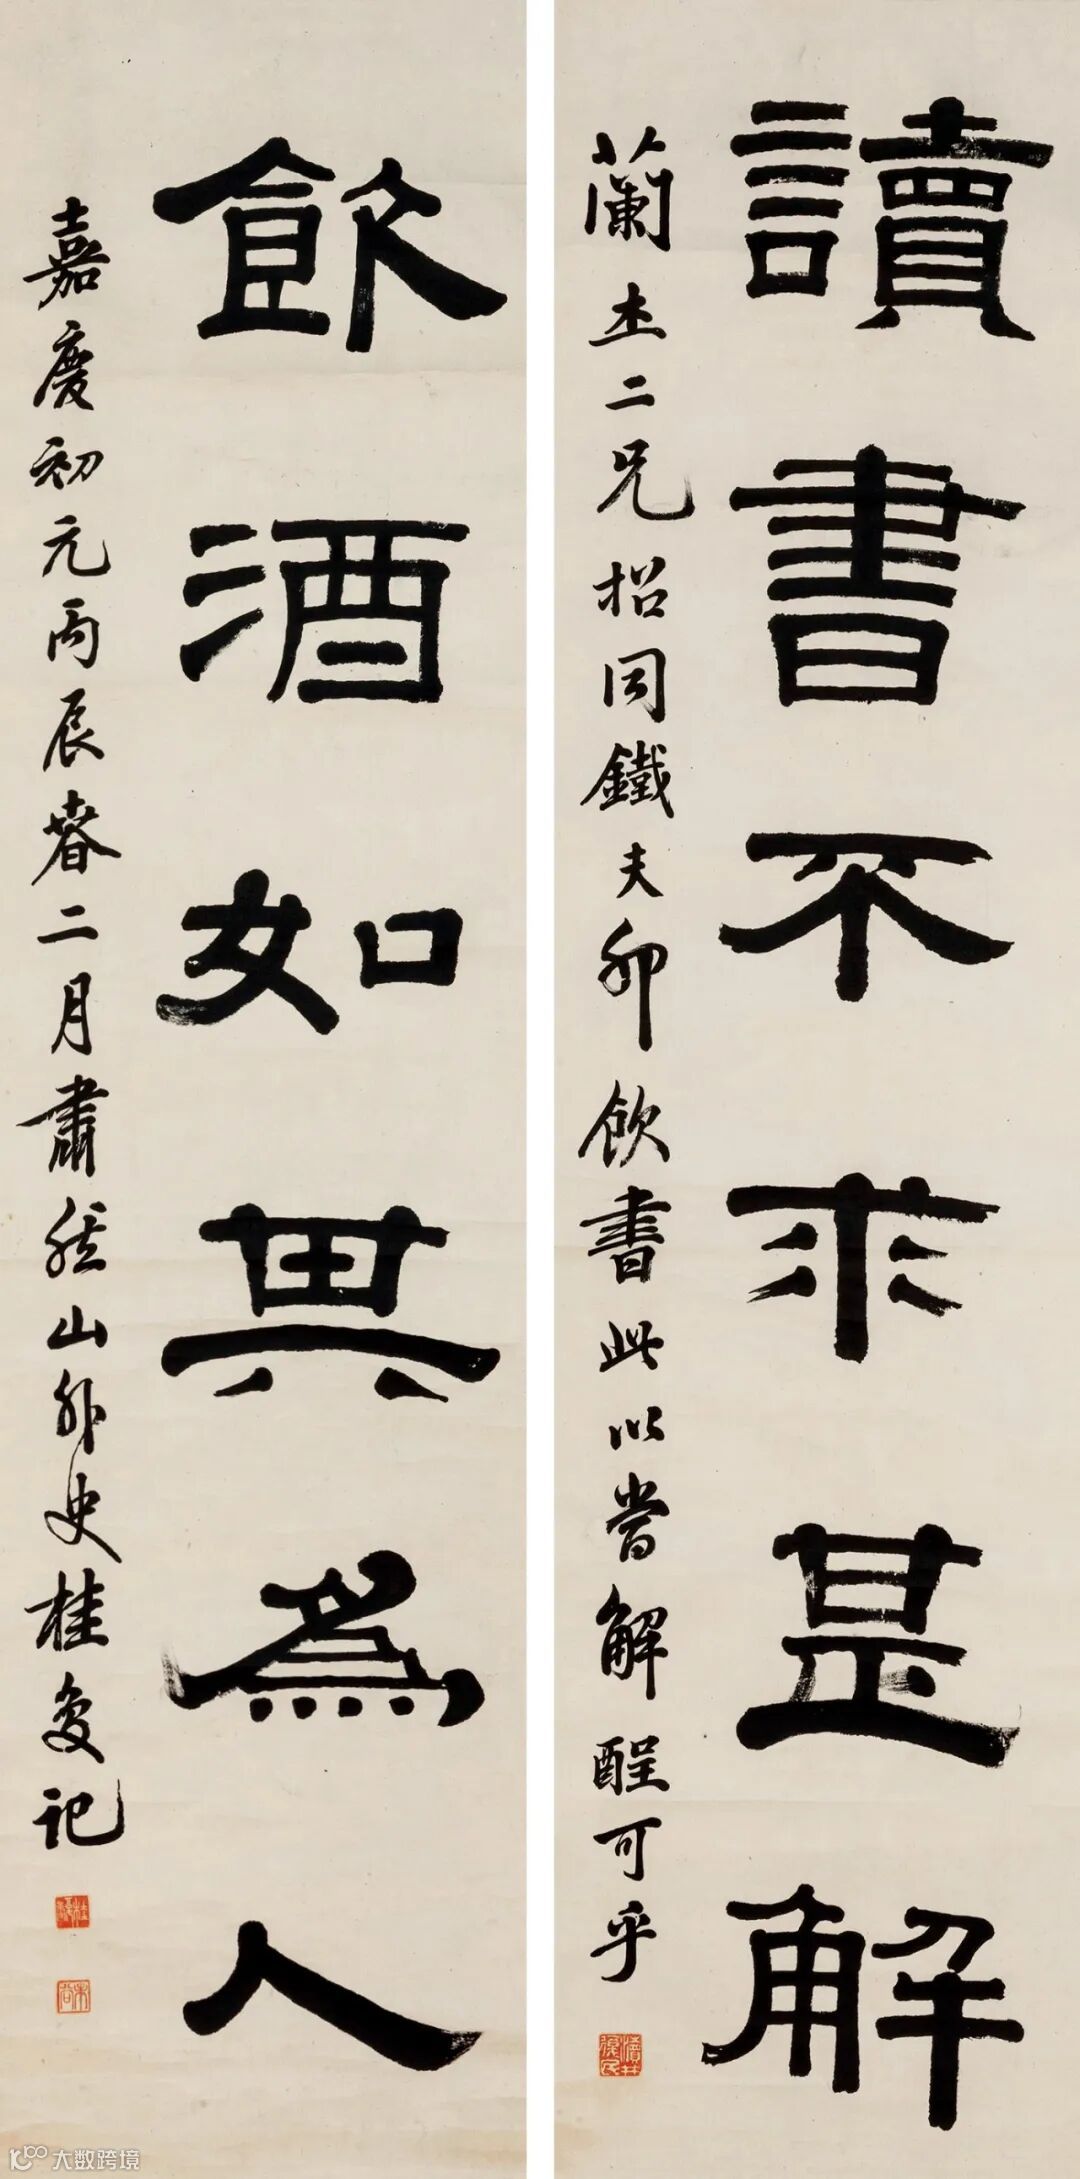 讀書不求甚解
蘭二兄招同鐵夫卯飲書此以當解酲可乎
瀆井復民
飲酒如其為人
嘉慶初元丙辰春二月肅然山外史桂馥記
桂馥
未谷
大数跨境